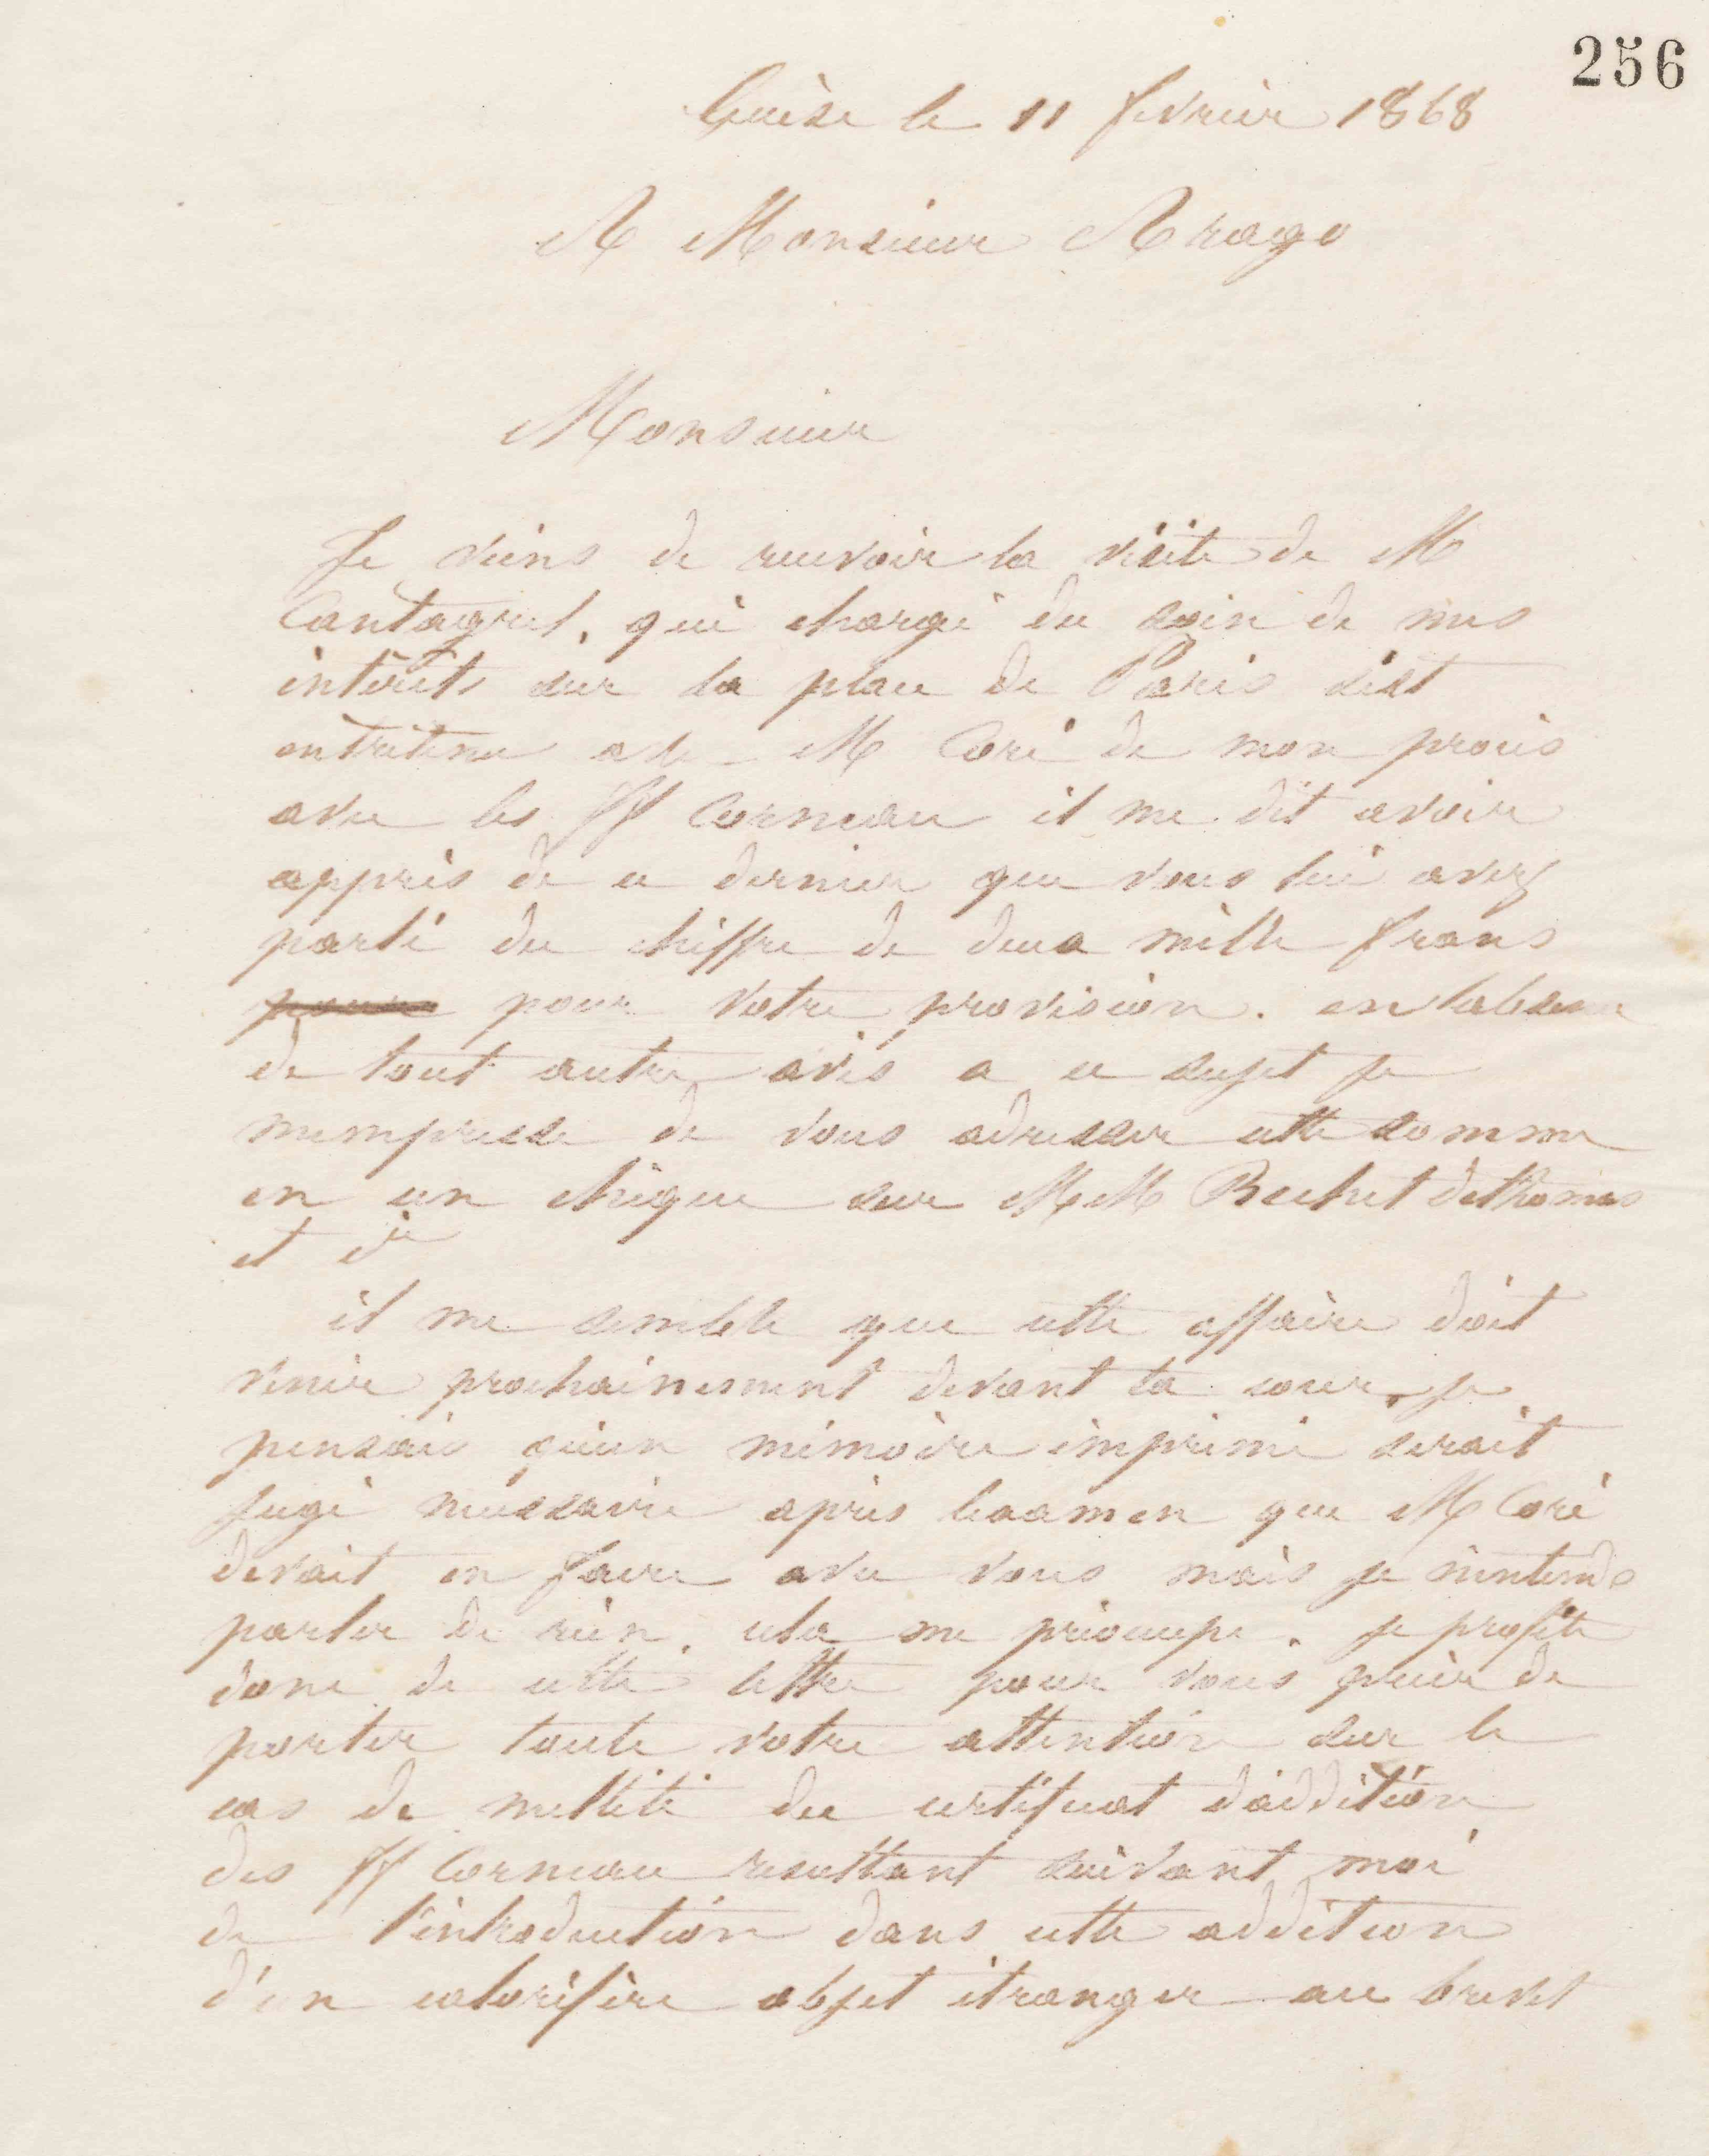 256
Guise le 11 fevrier 1868
A Monsieur Arago
Monsieur
Je viens de recevoir la visite de M
Cantagrel, qui chargé du soin de mes
intérêts sur la place de Paris s'est
entretenu avec M Coré de mon procès
avec les ff Corneau il me dit avoir
appris de ce dernier que vous lui avez
parlé du chiffre de deux mille francs
pour pour votre provision. en labsence
de tout autre avis a ce sujet je
mempresse de vous adresser cette somme
en un chèque sur MM Bechet Dethomas
et cie
il me semble que cette affaire doit
venir prochainement devant la cour, je
pensais qu'un mémoire imprimé serait
jugé nécessaire après lexamen que M Coré
devait en faire avec vous mais je n'entends
parler de rien, cela me préoccupe. je profite
donc de cette lettre pour vous prier de
porter toute votre attention sur le
cas de nullité du certificat d'addition
des ff Corneau resultant suivant moi
de l'introduction dans cette addition
d'un calorifère objet étranger au brevet